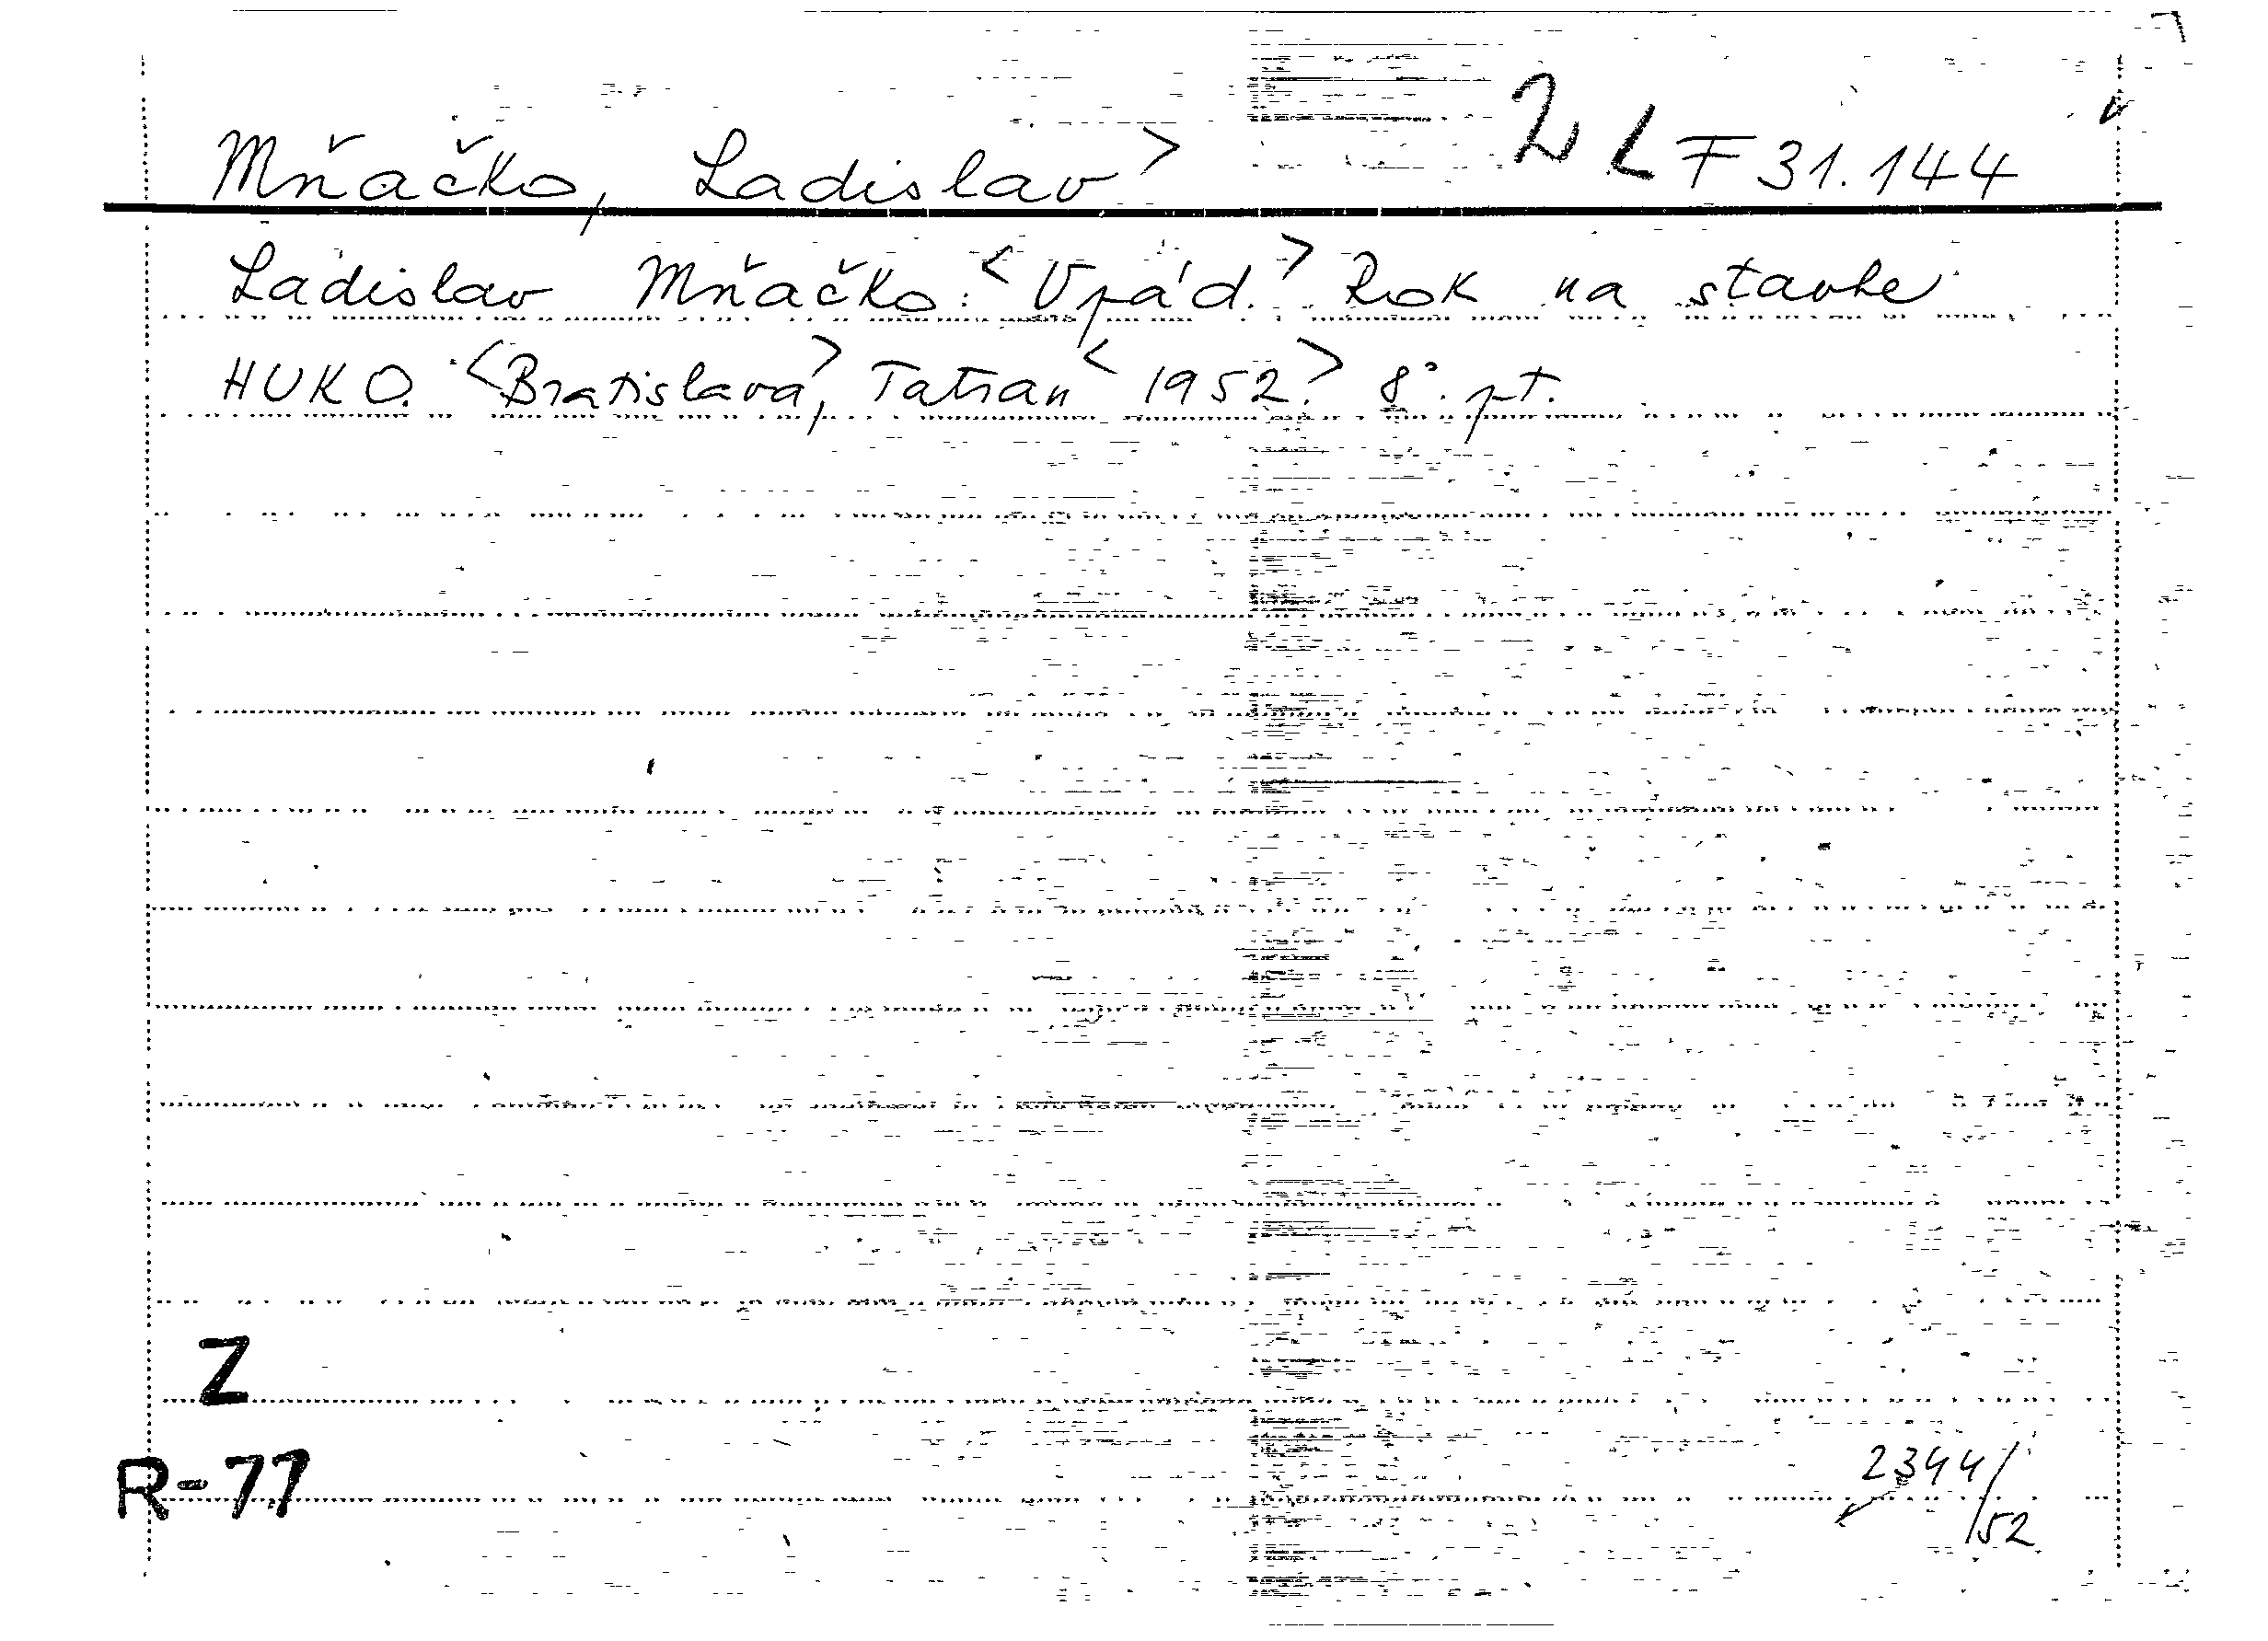 Mňačko, Ladislav> 2 L F 31.144
Ladislav Mňačko: <Vpád.> Rok na stavbe
HUKO. <Bratislava,> Tatran <1952.> 8°. pt.
Z
R-77
2344/
52